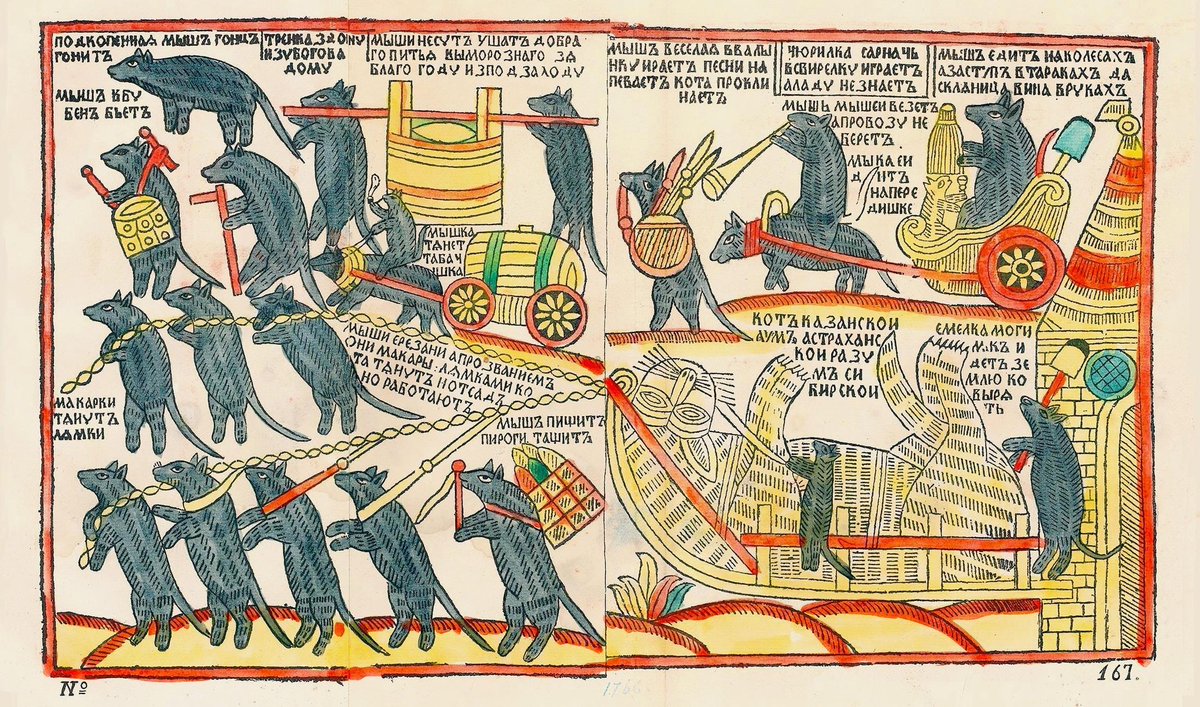 ПОДКОПЕННАЯ МЫШЪ ГОНЦЪ
ГОНИТЪ
МЫШЪ ВБУ
БЕНЪ БЬЕТЪ
ТРЕНКА ЗДОНУ
ИЗУБОГОВА
ДОМУ
МЫШИ НЕСУТЪ УШАТЪ ДОБРА
ГО ПИТЬЯ ВЫМОРОЗНАГО ЗЯ
БЛАГО ГОДУ ИЗПОДЗАЛОДУ
МЫШКА
ТЯНЕТ
ТАБАЧ
ИШКА
МЫШИ ЕРЕЗАНИ АПРОЗВАНИЕМЪ
ОНИ МАКАРЫ ЛЯМКАМИ КО
ТА ТЯНУТЪ И ОТСАДЪ
НО РАБОТАЮТЪ
МАКАРКИ
ТЯНУТЪ
ЛЯМКИ
МЫШ ПИЩИТЪ
ПИРОГИ ТАЩИТЪ
МЫШЪ ВЕСЕЛАЯ ВВАЛЫ
НКУ ИРАЕТЪ ПЕСНИ НА
ПЕВАЕТЪ КОТА ПРОКЛИ
НАЕТЪ
ЧЮРИЛКА САРНАЧЬ
ВСВИРЕЛКУ ИГРАЕТЪ
АЛАДУ НЕЗНАЕТЪ
МЫШЪ ЕДИТЪ НАКОЛЕСАХЪ
АЗАСТУП ВТАРАКАХЪ ДА
СКЛАНИЦА ВИНА ВРУКАХЪ
МЫШЬ МЫШЕИ ВЕЗЕТЪ
АПРОВОЗУ НЕ
БЕРЕТЪ
МЫКА СИ
ДИТЪ
НАПЕРЕ
ДИШКЕ
КОТЪ КАЗАНСКОИ
АУМЪ АСТРАХАНС
КОИ РАЗУ
МЪ СИ
БИРСКОИ
ЕМЕЛКА МОГИ
ЛЯКЪ И
ДЕТЪ ЗЕ
МЛЮ КО
ВЫРЯ
ТЬ
№
1766
167.